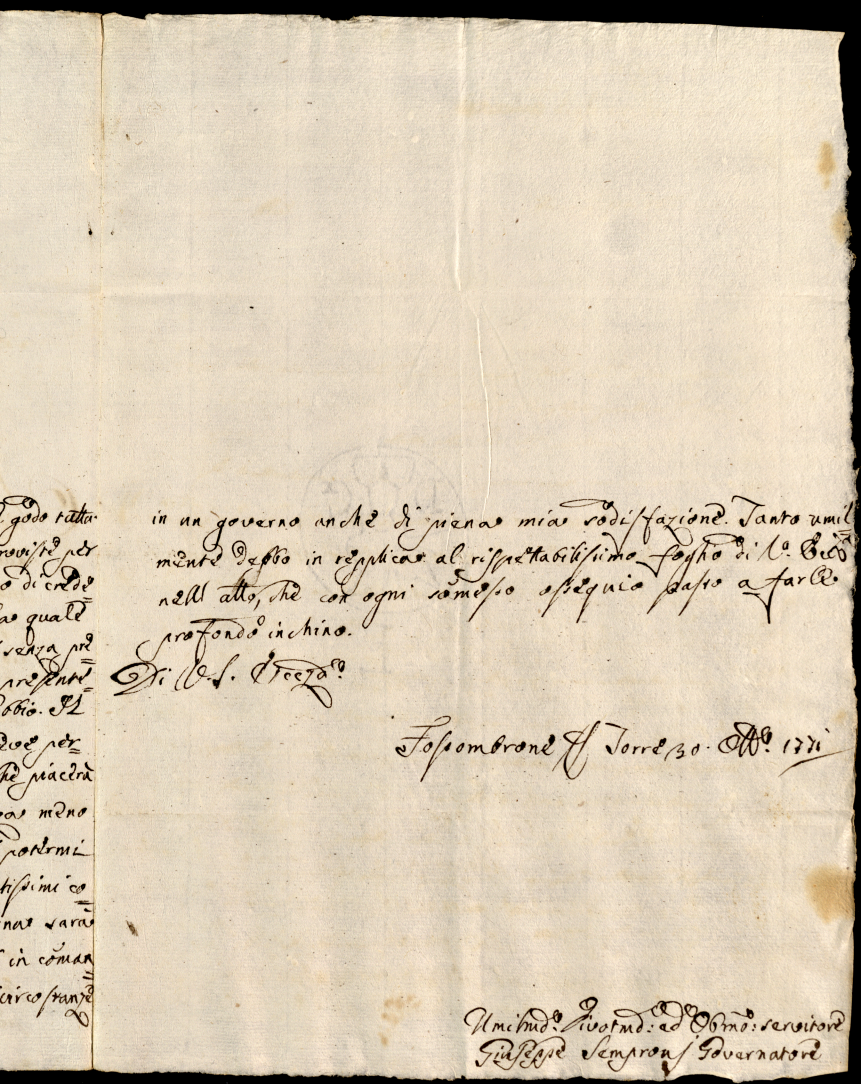 godo tutta-
roviste per
o di crede=
a quale
senza pre=
presente=
obbio. Il
per=
he piacerà
meno
potermi
tissimi co=
na sarà
in coman=
circostanze
in un governo anche di piena mia sodisfazione. Tanto umil=
mente debbo in replica al rispettabilissimo foglio di V.ª Ecc.ª
nell' atto, che con ogni somesso ossequio passo a farle
profondo inchino.
Di V.S. Eccez.ª
Fossombrone Torre 30. Ott.e 1771
Umilmo. Divotmo: ed Obmo: servitore
Giuseppe Sempronj Governatore